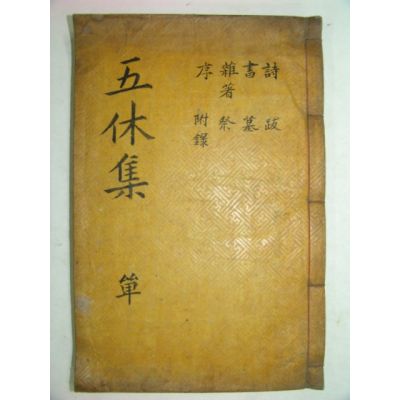 詩 跋
書 墓
雜著 祭
序 附錄
五休集 單